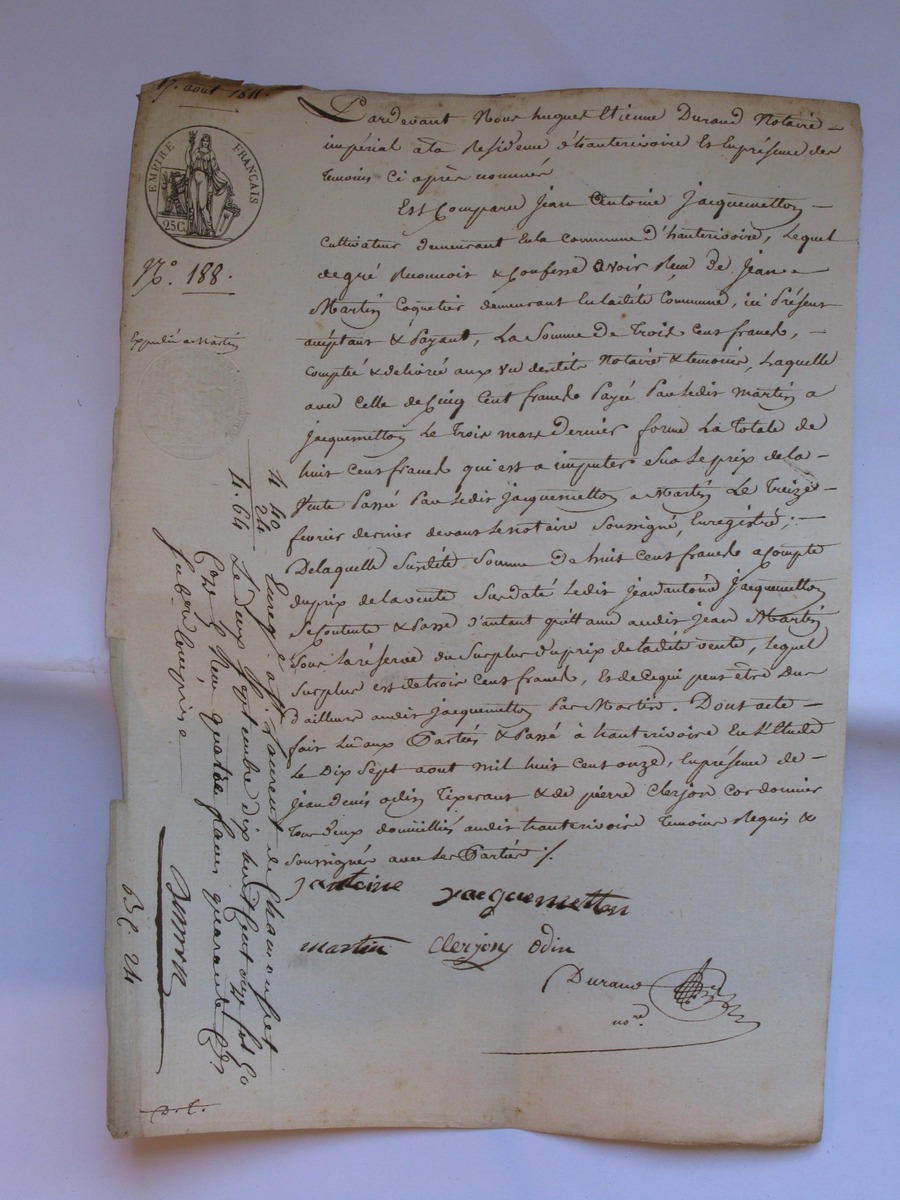 17. aout 1811.
EMPIRE FRANÇAIS
25C.
N.o 188.
Expedié a Martin
Pardevant Nous hugues Etienne Durand Notaire
impérial ala Residence d'hauterivoire Es Enprésence des
temoins Ci après nommés
Est Comparu Jean Antoine Jacquemetton
Cultivateur demeurant En la Commune d'hauterivoire, Lequel
de gré Reconnoit & Confesse avoir Reçu De Jean
Martin Coquetier demeurant En ladite Commune, ici Présent
acceptant & Payant, La Somme De Trois Cent francs,
Comptée & delivrée aux vu desdits Notaire & temoins, Laquelle
avec Celle de Cinq Cent francs Payée Par Ledit Martin a
Jacquemetton Le Trois mars Dernier forme La Totale de
huit Cent francs qui est a imputer Sur Le prix de la
Vente Passé Par Ledit Jacquemetton a Martin Le Treize
fevrier dernier devant Le notaire Soussigné, Enregistré;
De laquelle Susdite Somme De huit Cent francs a Compte
du prix de la vente Sus daté Ledit Jean antoine Jacquemetton
Se Contente & Passe d'autant quittance audit Jean Martin
Sous la réserve du Surplus du prix de ladite vente, Lequel
Surplus est de trois Cent francs, Es de Ce qui peut être Dû
d'ailleurs audit Jacquemetton Par Martin. Dont acte
fait Lu aux Parties & Passé à hauterivoire En L'Etude
Le Dix Sept aout Mil huit Cent onze, Enprésence de
Jean denis odin Tixerant & de pierre Clerjon Cordonnier
tous deux domiciliés audit hauterivoire Temoins Requis &
Soussignés avec Les Parties /.
J antoine Jacquemetton
Martin Clerjon Odin
Durand
no.re
4 40
24
4. 64
Enreg.é a St Laurent de Chamousset
Le deux Septembre dix huit Cent onze fol 60
Reçu quatre francs quarante C.es
Subon Comprise
Bl. 24